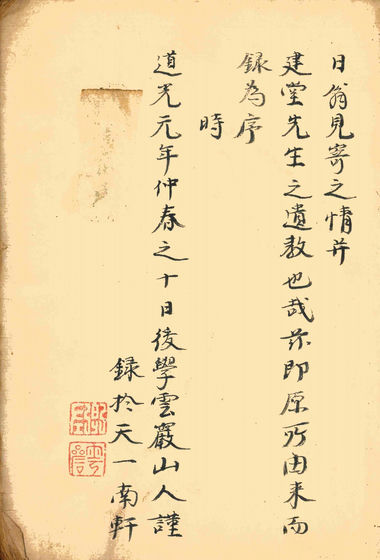 日翁見寄之情并
建堂先生之遺教也哉茲即原所由来而
録為序
時
道光元年仲春之十日後學雲巖山人謹
録於天一南軒